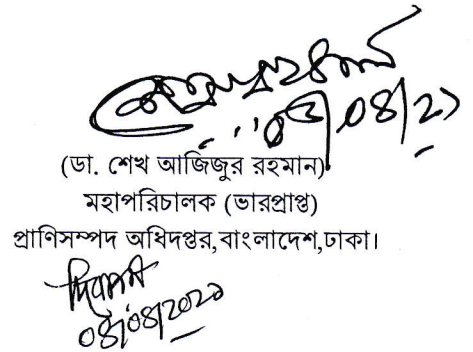 ০৫/০৪/২১
(ডা. শেখ আজিজুর রহমান)
মহাপরিচালক (ভারপ্রাপ্ত)
প্রাণিসম্পদ অধিদপ্তর,বাংলাদেশ,ঢাকা।
০৪/০৪/২০২১